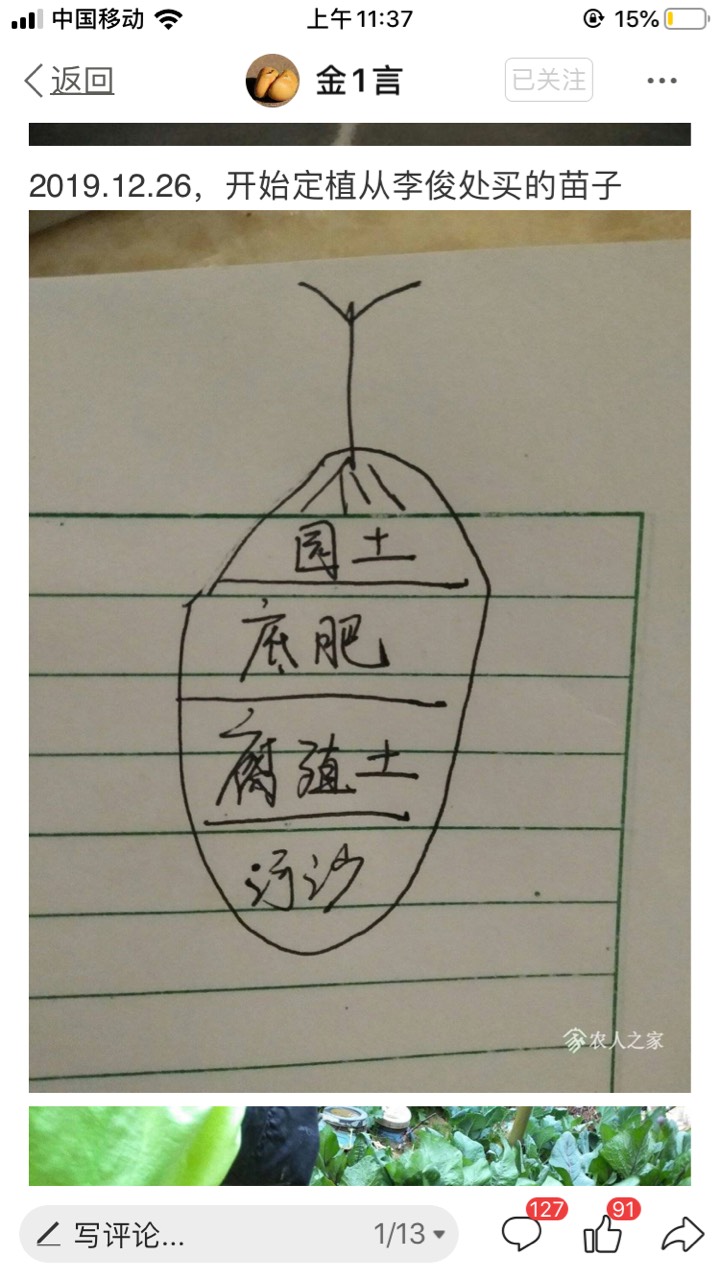 中国移动
上午11:37
15%
返回
金1言
已关注
2019.12.26，开始定植从李俊处买的苗子
园土
底肥
腐殖土
河沙
农人之家
写评论...
1/13
127
91